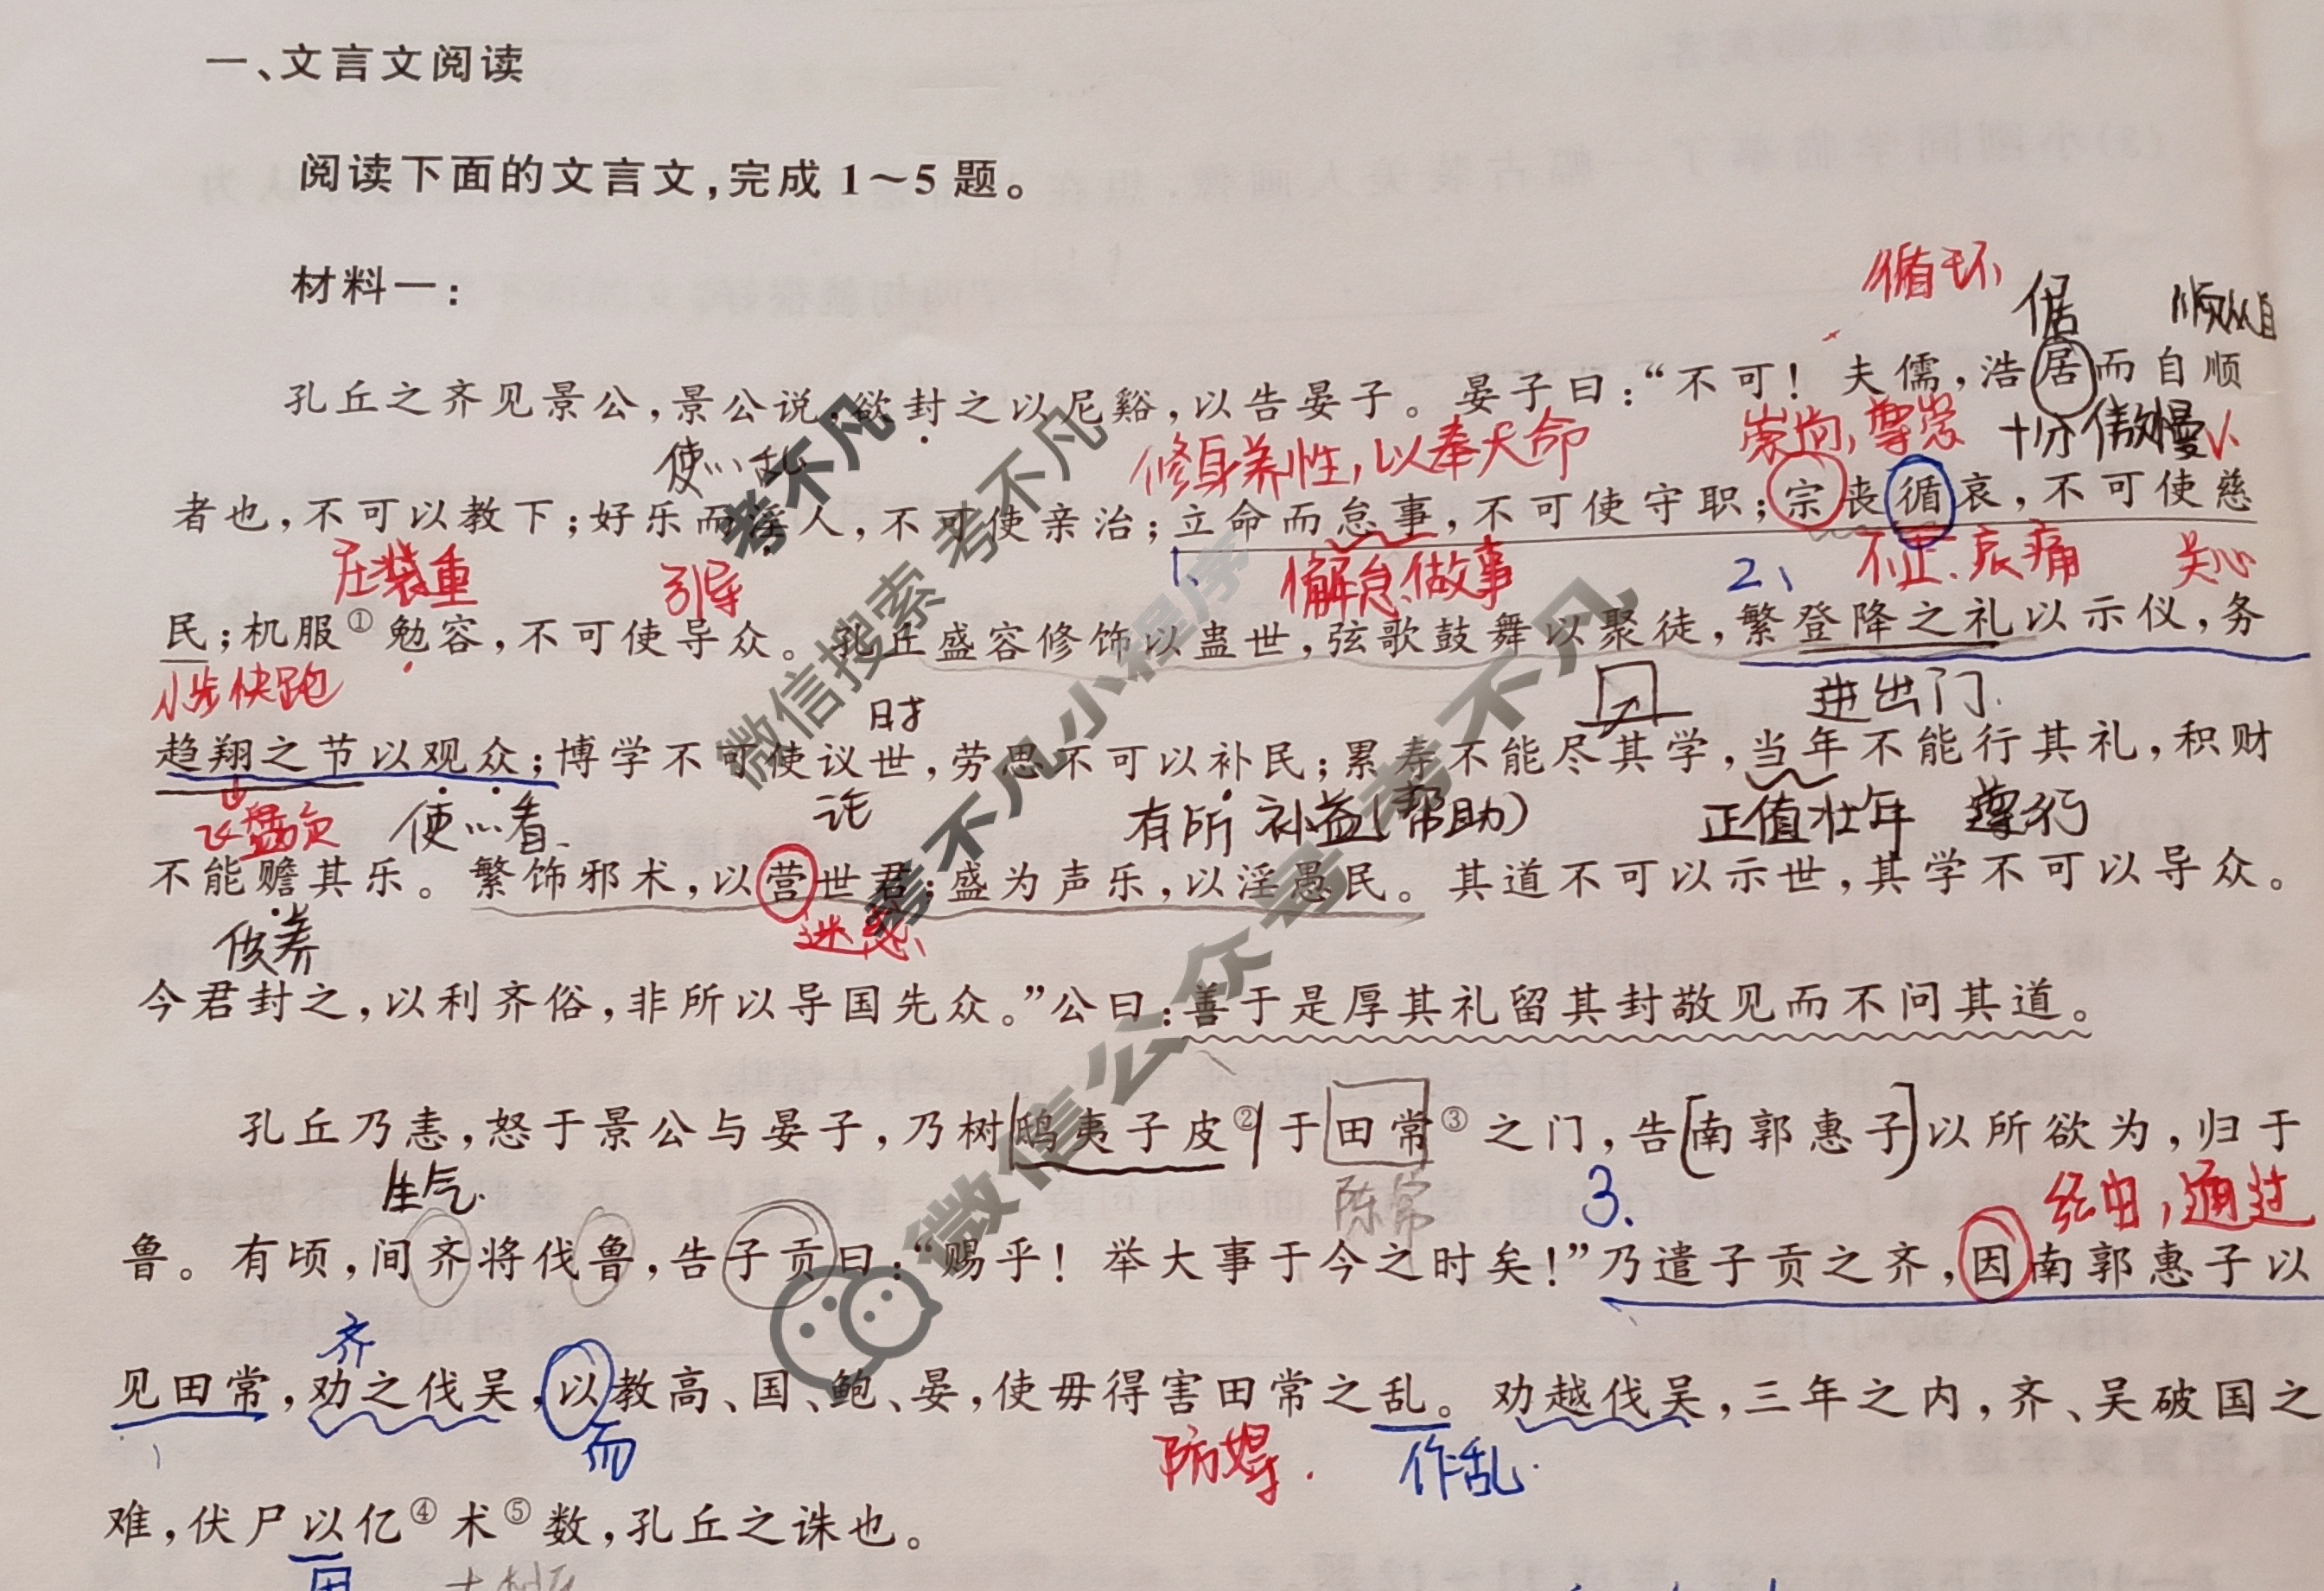 一、文言文阅读
阅读下面的文言文,完成1～5题。
材料一:
循环
倨
孔丘之齐见景公,景公说,欲封之以尼谿,以告晏子。晏子曰:“不可! 夫儒,浩居而自顺
崇尚,尊崇 十分傲慢
修身养性,以奉天命
者也,不可以教下;好乐而淫人,不可使亲治;立命而怠事,不可使守职;宗丧循哀,不可使慈
庄装重 引导 1、 懈怠做事 2、 不止哀痛 关心
民;机服①勉容,不可使导众。孔丘盛容修饰以蛊世,弦歌鼓舞以聚徒,繁登降之礼以示仪,务
小步快跑 时 进出门
趋翔之节以观众;博学不可使议世,劳思不可以补民;累寿不能尽其学,当年不能行其礼,积财
使…看 有所补益(帮助) 正值壮年 遵行
不能赡其乐。繁饰邪术,以营世君;盛为声乐,以淫愚民。其道不可以示世,其学不可以导众。
迷惑
今君封之,以利齐俗,非所以导国先众。”公曰:善于是厚其礼留其封敬见而不问其道。
孔丘乃恚,怒于景公与晏子,乃树鸱夷子皮②于田常③之门,告南郭惠子以所欲为,归于
生气 陈常 3、 经由,通过
鲁。有顷,间齐将伐鲁,告子贡曰:“赐乎! 举大事于今之时矣!”乃遣子贡之齐,因南郭惠子以
齐
见田常,劝之伐吴,以教高、国、鲍、晏,使毋得害田常之乱。劝越伐吴,三年之内,齐、吴破国之
而 防碍 作乱
难,伏尸以亿④术⑤数,孔丘之诛也。
考不凡
考不凡
微信搜索
考不凡小程序
考不凡
微信公众号 考不凡